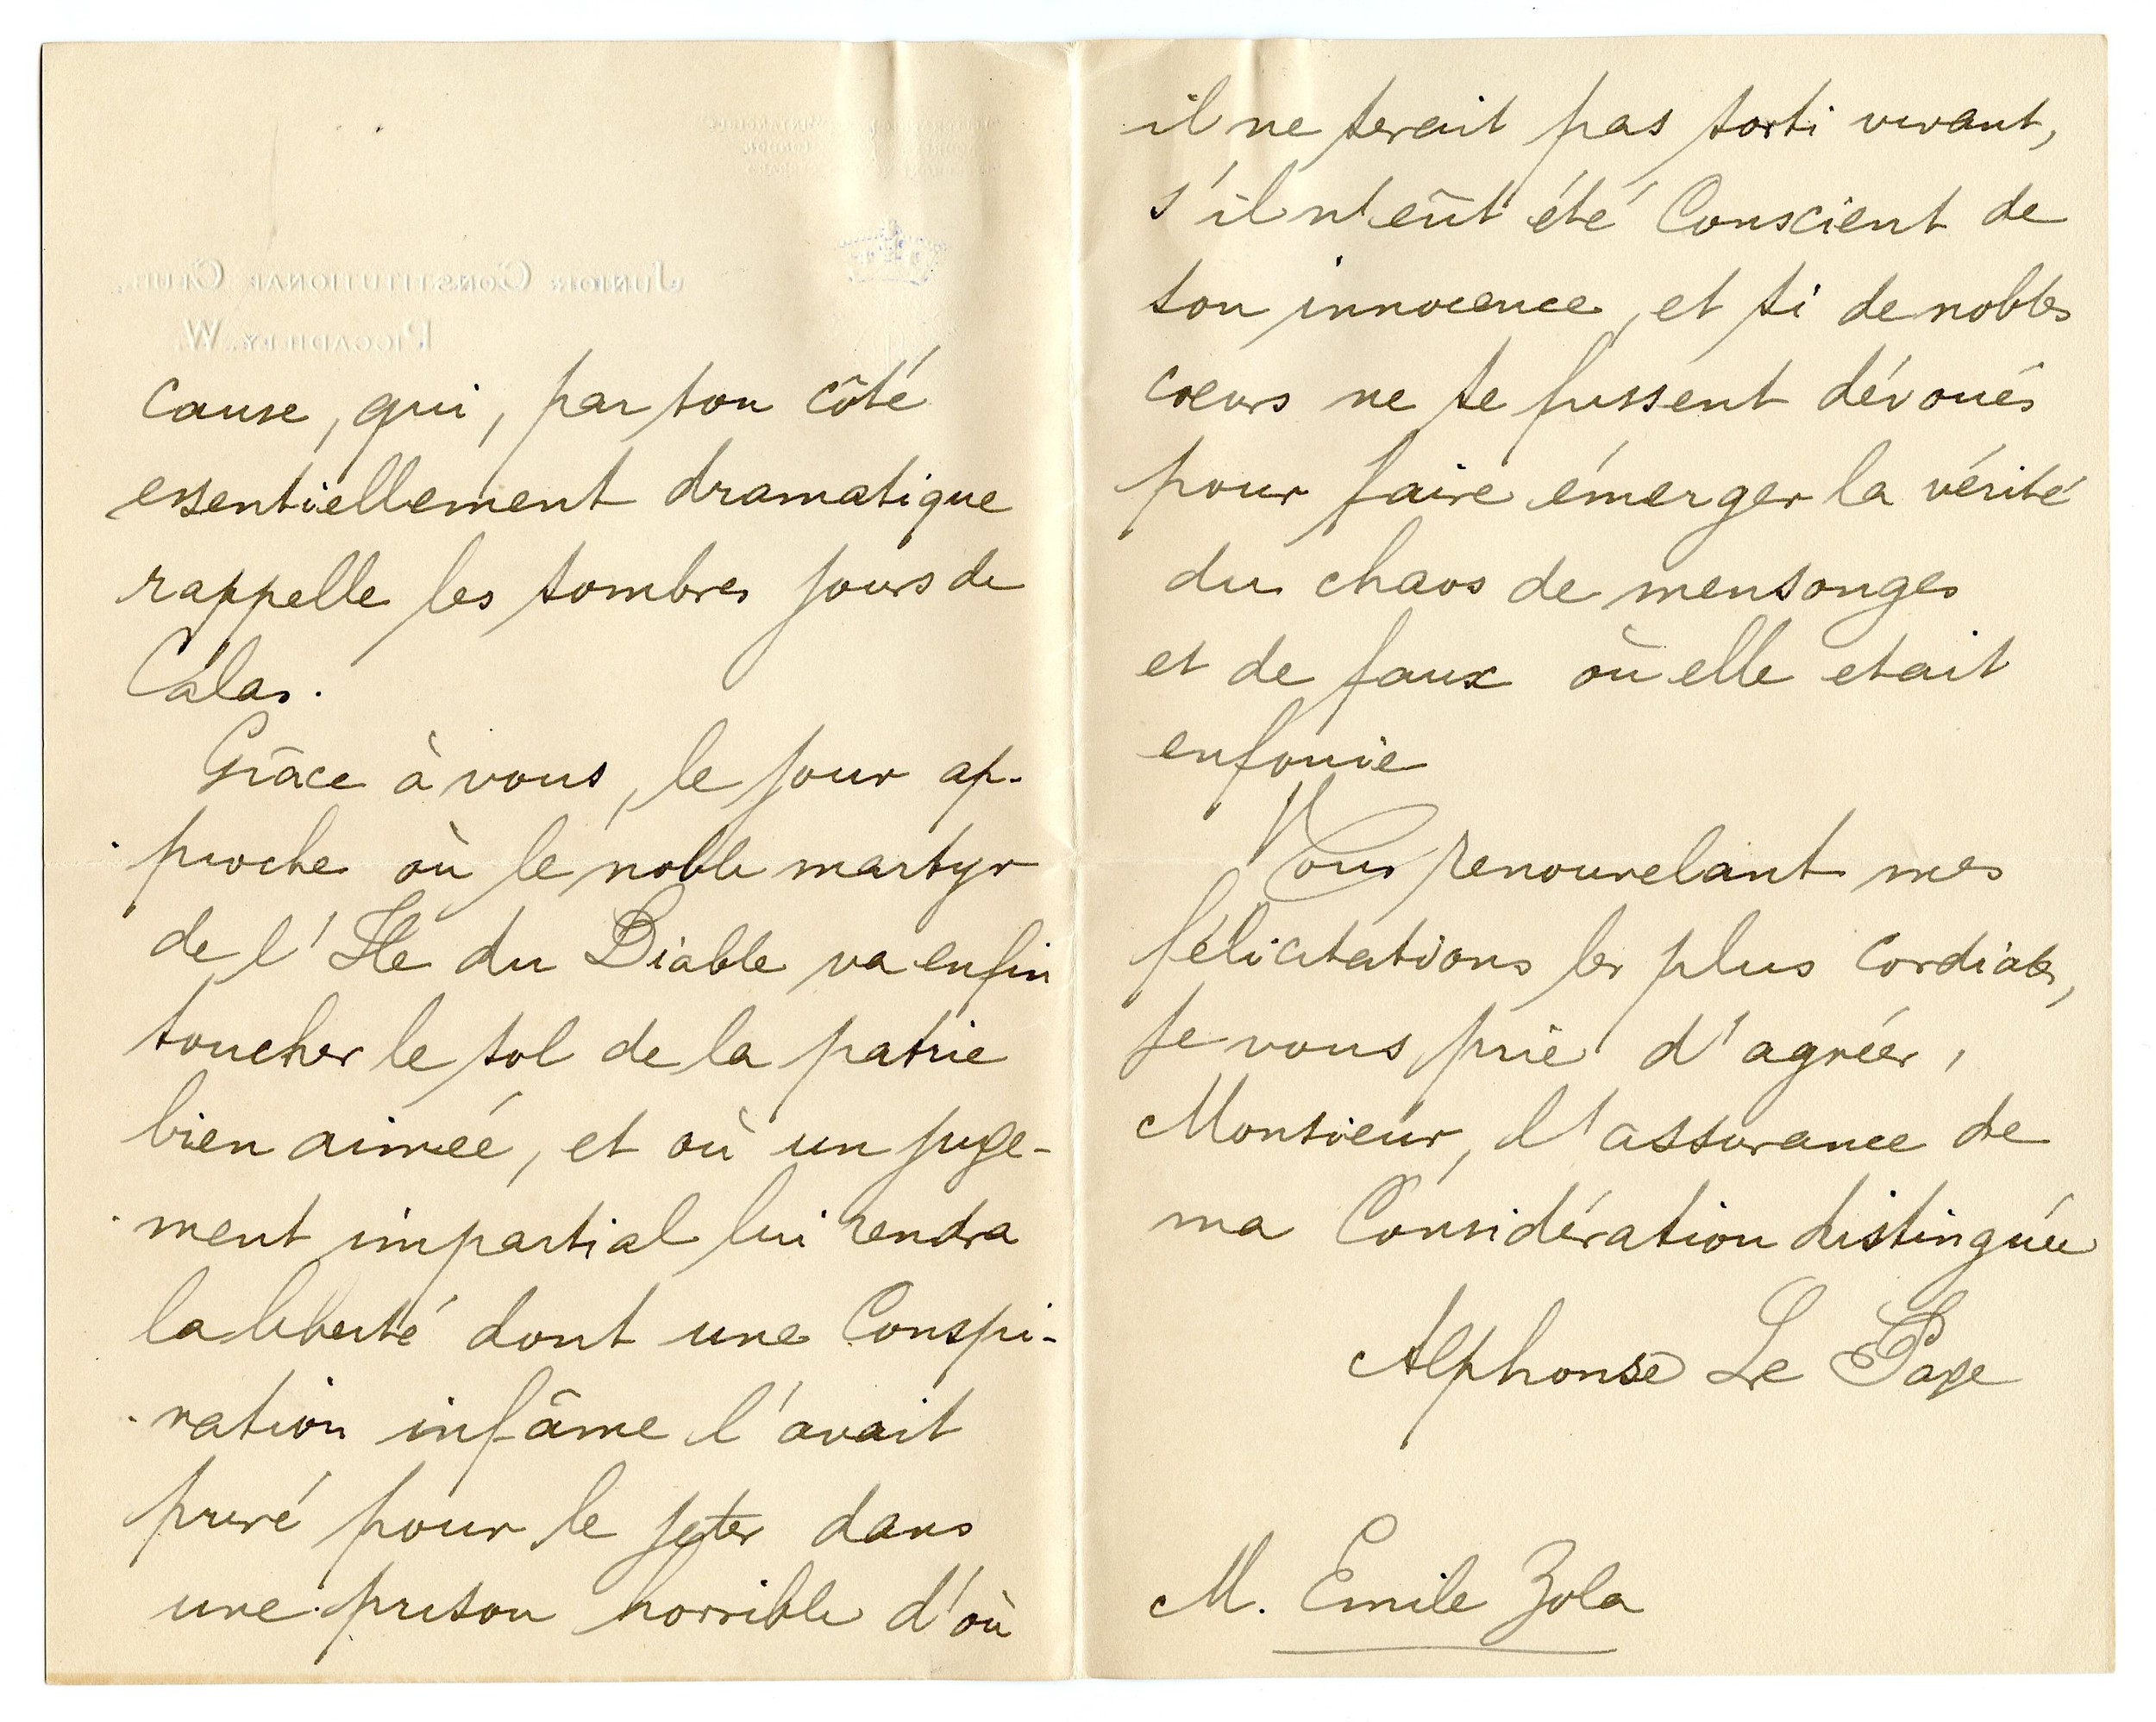 Junior Constitutional Club,
Piccadilly. W.
cause, qui, par son côté
essentiellement dramatique
rappelle les sombres jours de
Calas.
Grâce à vous, le jour ap-
proche où le noble martyr
de l'Ile du Diable va enfin
toucher le sol de la patrie
bien aimée, et où un juge-
ment impartial lui rendra
la liberté dont une Conspi-
ration infâme l'avait
privé pour le jeter dans
une prison horrible d'où
il ne serait pas sorti vivant,
s'il n'eût été Conscient de
son innocence, et si de nobles
coeurs ne se fussent dévoués
pour faire émerger la vérité
du chaos de mensonges
et de faux où elle etait
enfouie
Vous renouvelant mes
félicitations les plus cordiales,
je vous prie d'agréer,
Monsieur, l'assurance de
ma Considération distinguée
Alphonse Le Page
M. Emile Zola